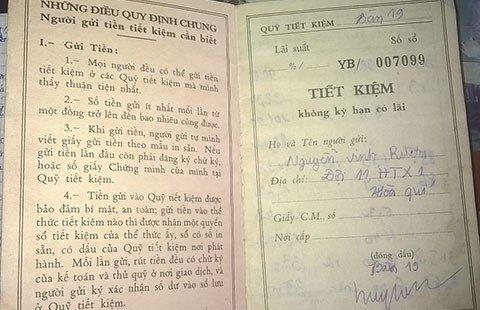 NHỮNG ĐIỀU QUY ĐỊNH CHUNG
Người gửi tiền tiết kiệm cần biết
I.— Gửi Tiền:
1.— Mọi người đều có thể gửi tiền
tiết kiệm ở các Quỹ tiết kiệm mà mình
thấy thuận tiện nhất.
2.— Số tiền gửi ít nhất mỗi lần từ
một đồng trở lên đến bao nhiêu cũng được.
3.— Khi gửi tiền, người gửi tự mình
viết giấy gửi tiền theo mẫu in sẵn. Nếu
gửi tiền lần đầu còn phải đăng ký chữ ký,
hoặc số giấy Chứng minh của mình tại
Quỹ tiết kiệm.
4.— Tiền gửi vào Quỹ tiết kiệm được
bảo đảm bí mật, an toàn; gửi tiền vào thể
thức tiết kiệm nào thì được nhận một quyển
sổ tiết kiệm của thể thức ấy, sổ có số in
sẵn, có dấu của Quỹ tiết kiệm nơi phát
hành. Mỗi lần gửi, rút tiền đều có chữ ký
của kế toán và thủ quỹ ở nơi giao dịch, và
người gửi ký xác nhận số dư vào sổ lưu
ở Quỹ tiết kiệm.
QUỸ TIẾT KIỆM Bàn 19
Lãi suất Số sổ
%/ YB/ 007099
TIẾT KIỆM
không kỳ hạn có lãi
Họ và Tên người gửi:
Nguyễn
Địa chỉ: Đội 11 HTX 1
Hòa quí
Giấy C.M. số
Nơi cấp
(đóng dấu)
Bàn 19